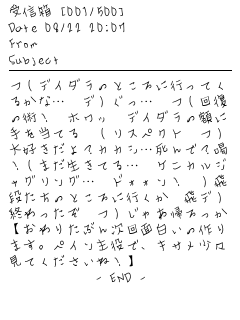 受信箱 [001/500]
Date 08/22 20:07
From
Subject
つ(デイダラのところに行ってく
るかな… デ)ぐっ… つ(回復
の術! ホワッ デイダラの額に
手を当てる (リスペクト つ)
大好きだよてカカシ…死んでて喝
!(まだ生きてる… ゲニカルジ
ャグリング… ドォォン! )飛
段たちのところに行くか 飛デ)
終わったぞ つ)じゃあ帰ろっか
【おわりたぶん次回面白いの作り
ます。ペイン主役で、キサメ少々
見てくださいね!】
- END -